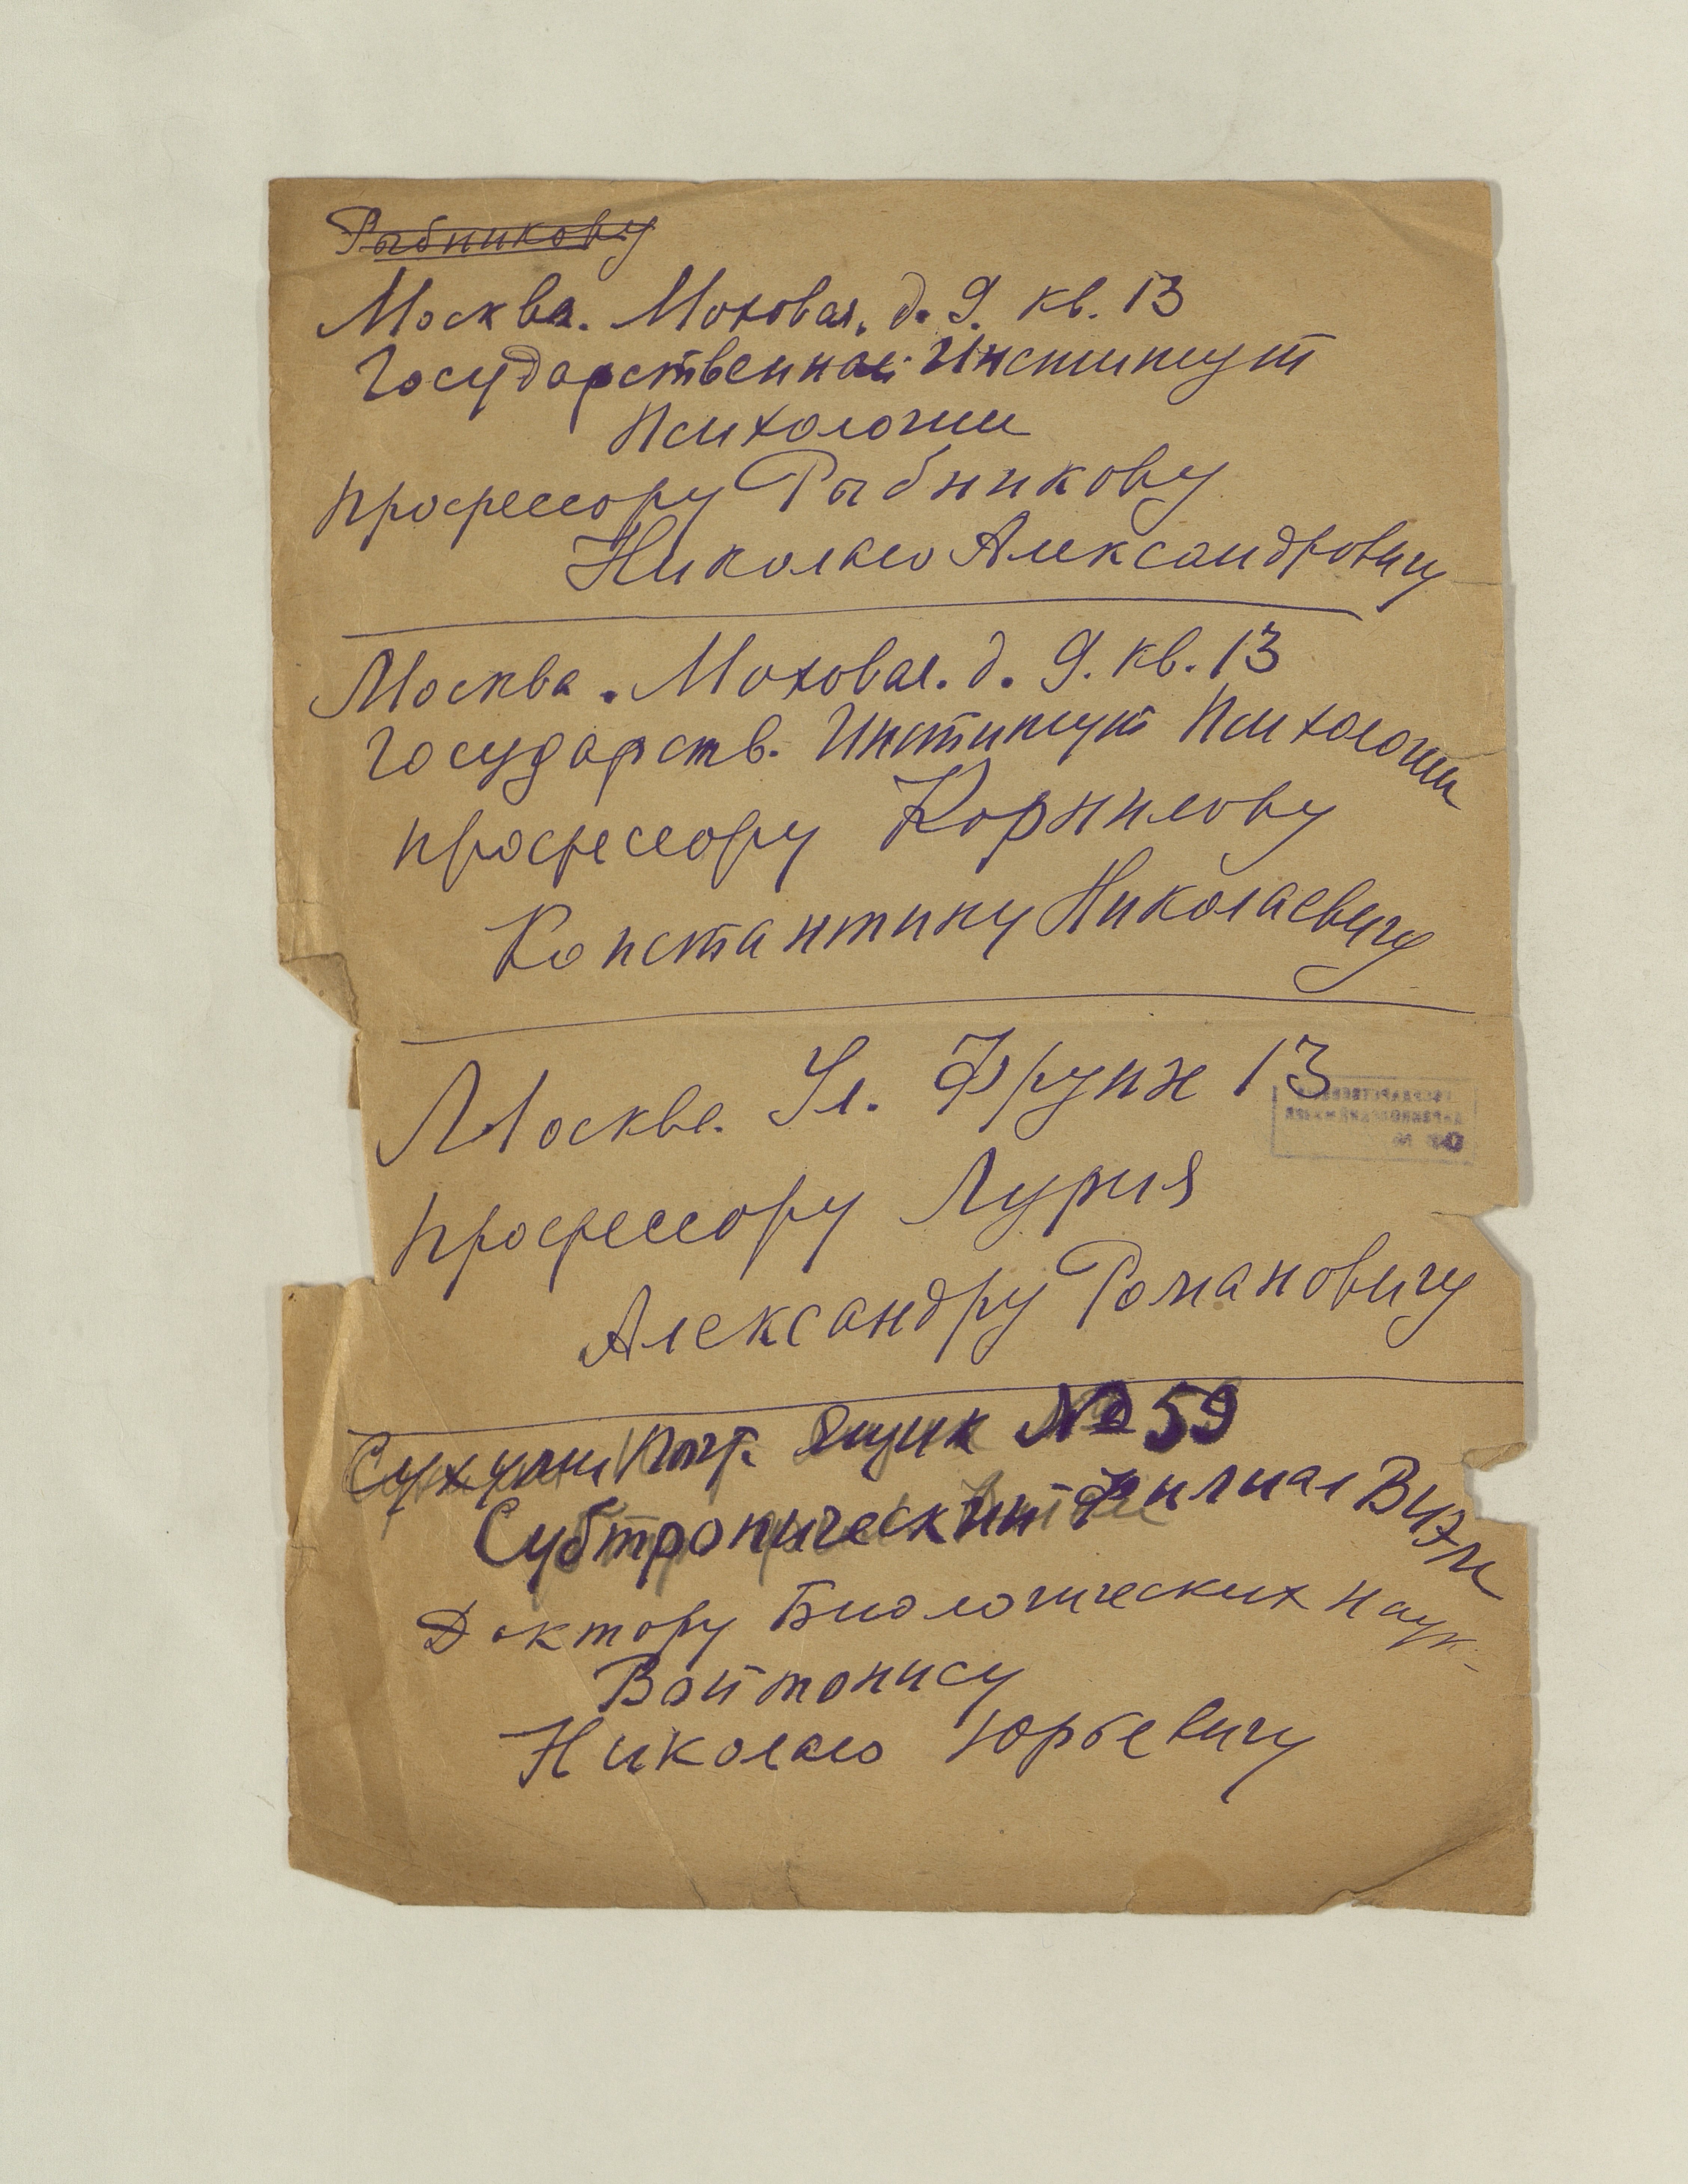 Рыбникову
Москва. Моховая. д. 9. кв. 13
Государственный Институт
Психологии
профессору Рыбникову
Николаю Александровичу
Москва. Моховая. д. 9. кв. 13
Государств. Институт Психологии
профессору Корнилову
Константину Николаевичу
Москва. Ул. Фрунзе 13
профессору Лурия
Александру Романовичу
Сухуми Почт. Ящик № 59
Субтропический Филиал ВИЭМ
Доктору Биологических наук
Войтонису
Николаю Юрьевичу